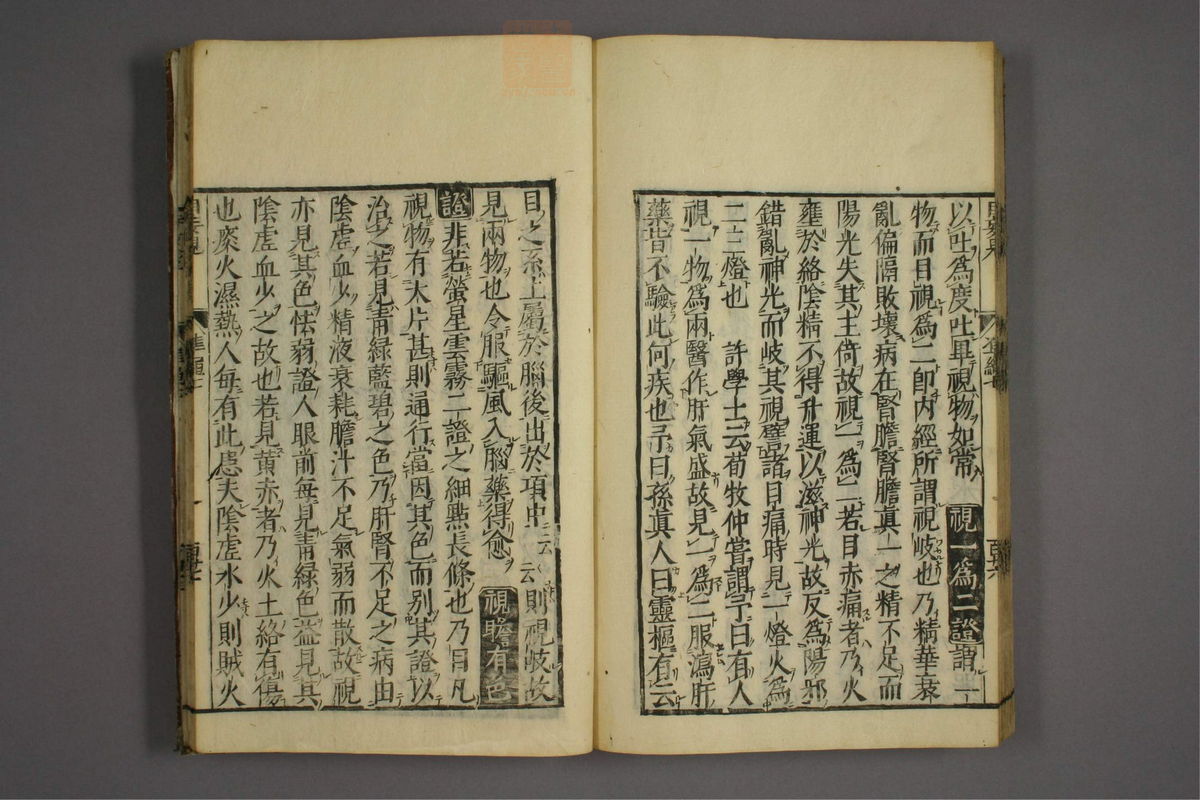 以吐爲度吐畢視物如常 視一爲二證謂一
物而目視爲二卽內經所謂視岐也乃精華衰
亂偏隔敗壞病在腎膽腎膽眞一之精不足而
陽光失其主倚故視一爲二若目赤痛者乃火
壅於絡陰精不得升運以滋神光故反爲陽邪
錯亂神光而岐其視譬諸目痛時見一燈火爲
二三燈也 許學士云荀牧仲嘗謂予曰有人
視一物爲兩醫作肝氣盛故見一爲二服瀉肝
藥皆不驗此何疾也予曰孫眞人曰靈樞有云
目之系上屬於腦後出於項中云云則視岐故
見兩物也令服驅風入腦藥得愈 視瞻有色
證非若螢星雲霧二證之細點長條也乃目凡
視物有大片甚則通行當因其色而別其證以
治之若見靑綠藍碧之色乃肝腎不足之病由
陰虛血少精液衰耗膽汁不足氣弱而散故視
亦見其色怯弱證人眼前每見靑綠色益見其
陰虛血少之故也若見黃赤者乃火土絡有傷
也痰火濕熱人每有此患夫陰虛水少則賊火